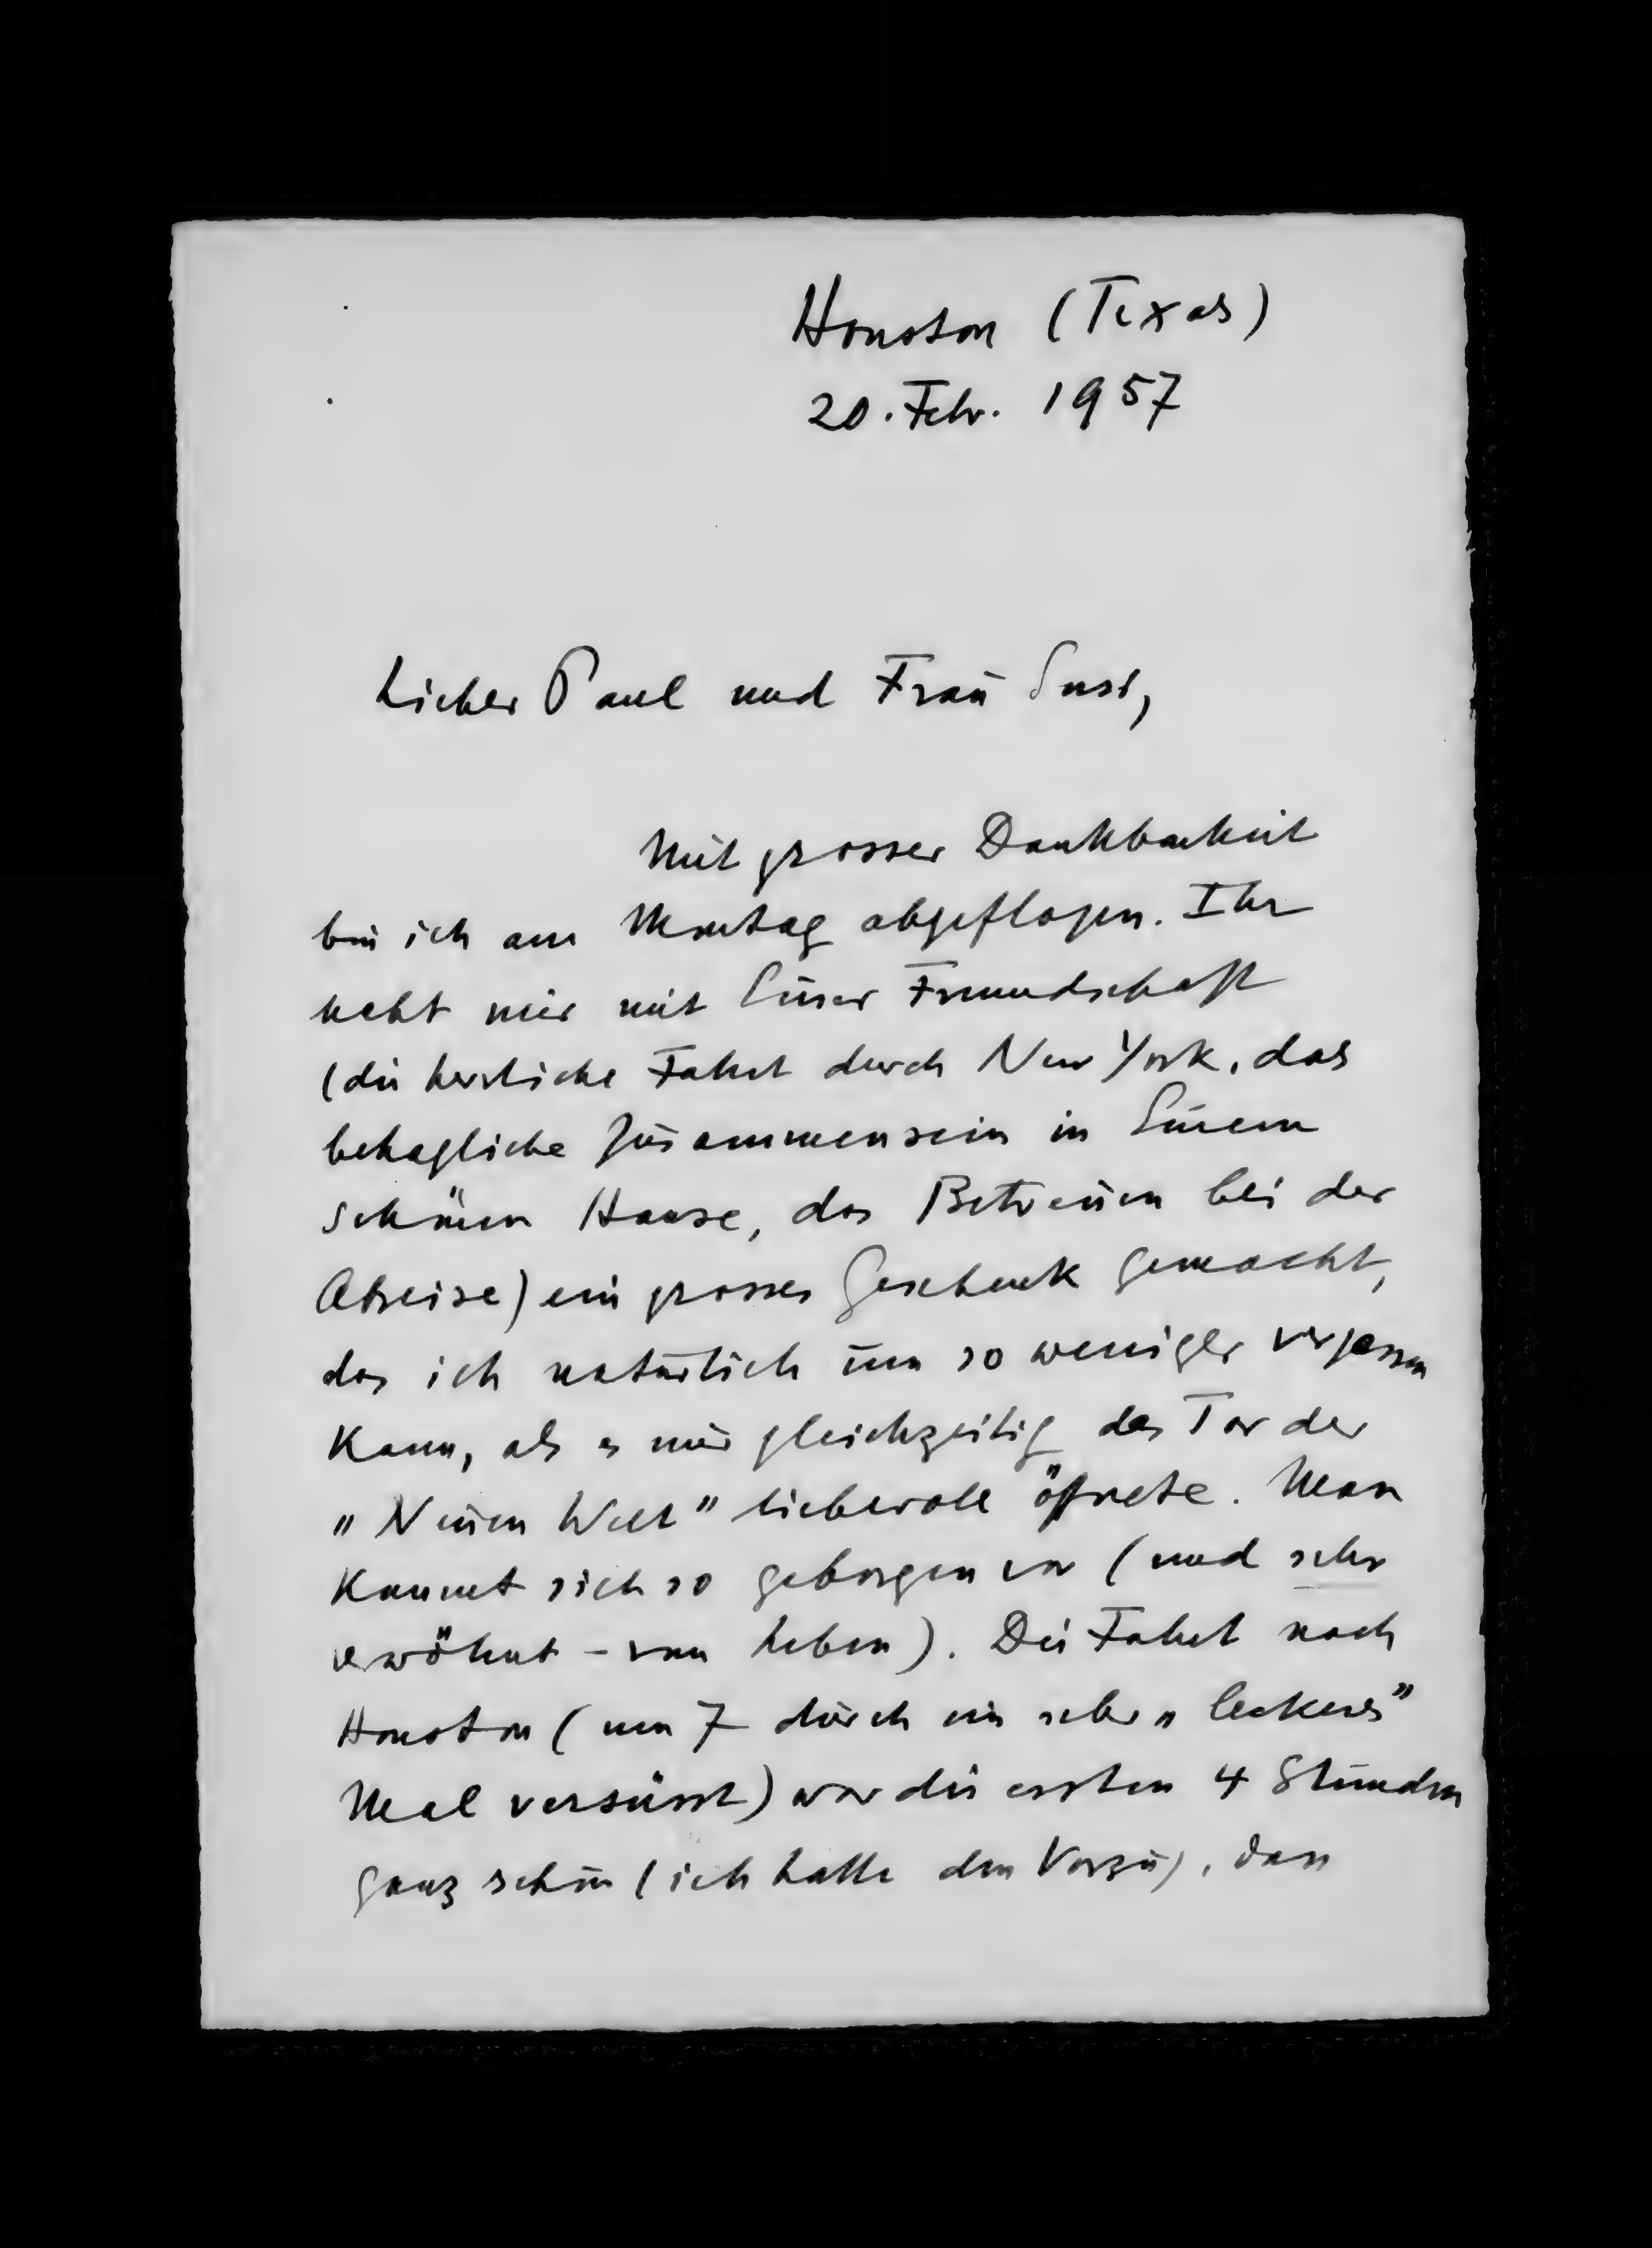 Houston (Texas)
20. Febr. 1957
Lieber Paul und Frau Susi,
Mit grosser Dankbarkeit
bin ich am Montag abgeflogen. Ihr
habt mir mit Eurer Freundschaft
(die herrliche Fahrt durch New York, das
behagliche Zusammensein in Eurem
schönen Hause, das Betreuen bei der
Abreise) ein grosses Geschenk gemacht,
das ich natürlich um so weniger vergessen
kann, als es mir gleichzeitig das Tor der
„Neuen Welt" liebevoll öffnete. Man
kommt sich so geborgen vor (und sehr
verwöhnt – vom Leben). Die Fahrt nach
Houston (um 7 durch ein sehr „leckeres"
Mal versüsst) war die ersten 4 Stunden
ganz schön (ich hatte den Vorzug, dass